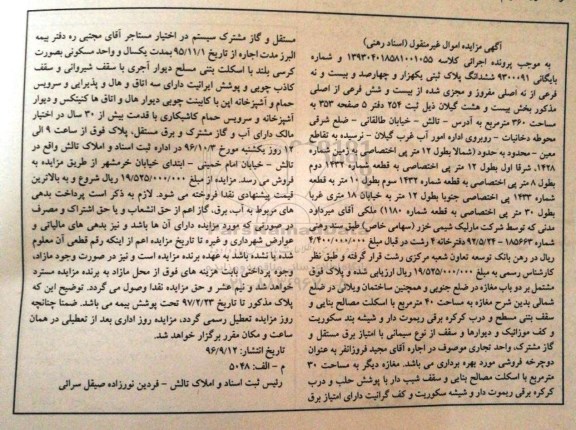 آگهی مزایده اموال غیرمنقول (اسناد رهنی)
به موجب پرونده اجرائی کلاسه ۱۳۹۳۰۴۰۱۸۵۸۱۰۰۱۰۵۵ و شماره
بایگانی ۹۳۰۰۰۹۱ ششدانگ پلاک ثبتی یکهزار و چهارصد و بیست و نه
فرعی از نه اصلی مفروز و مجزی شده از بیست و شش فرعی از اصلی
مذکور بخش بیست و هشت گیلان ذیل ثبت ۲۵۴ دفتر ۵ صفحه ۳۵۳ به
مساحت ۳۶۰ مترمربع به آدرس - تالش - خیابان طالقانی - ضلع شرقی
محوطه دخانیات - روبروی اداره امور آب غرب گیلان - نرسیده به تقاطع
معین - محدود به حدود (شمالا بطول ۱۲ متر پی اختصاصی آزمین شماره
۱۴۲۸، شرقا اول بطول ۱۲ متر پی اختصاصی به قطعه شماره ۱۴۳۲ دوم
بطول ۸ متر پی اختصاصی به قطعه شماره ۱۴۳۲ سوم بطول ۱۰ متر به قطعه
شماره ۱۴۳۳ پی اختصاصی جنوبا بطول ۱۲ متر به خیابان ۱۸ متری غربا
بطول ۳۰ متر پی اختصاصی به قطعه شماره ۱۱۸۰) ملکی آقای میرداود
مدنی که توسط شرکت مارلیک شیمی خزر (سهامی خاص) طبق سند رهنی
۱۸۵۶۶۳ - ۹۲/۵/۲۴ دفترخانه ۴ رشت در قبال مبلغ ۴/۴۰۰/۰۰۰/۰۰۰
ریال در رهن بانک توسعه تعاون شعبه مرکزی رشت قرار گرفته و طبق نظر
کارشناس رسمی به مبلغ ۱۹/۵۲۵/۰۰۰/۰۰۰ ریال ارزیابی شده و پلاک فوق
مشتمل بر دو باب مغازه در ضلع جنوبی و همچنین ساختمان ویلائی در ضلع
شمالی بدین شرح مغازه به مساحت ۴۰ مترمربع با اسکلت مصالح بنایی و
سقف بتنی مسطح و درب کرکره برقی ریموت دار و شیشه بند سکوریت
و کف موزائیک و دیوارها و سقف از نوع سیمانی با امتیاز برق مستقل و
گاز مشترک، واحد تجاری موصوف در اجاره آقای مجید فروزانفر به عنوان
دوچرخه فروشی مورد بهره برداری می باشد. مغازه دیگر به مساحت ۳۰
مترمربع با اسکلت مصالح بنایی و سقف شیب دار با پوشش حلب و درب
کرکره برقی ریموت دار و شیشه سکوریت و کف گرانیت دارای امتیاز برق
مستقل و گاز مشترک سیستم در اختیار مستاجر آقای مجتبی ره دفتر بیمه
البرز مدت اجاره از تاریخ ۹۵/۱۱/۱ بمدت یکسال و واحد مسکونی بصورت
کرسی بلند با اسکلت بتنی مسلح دیوار آجری با سقف شیروانی و سقف
کاذب چوبی و پوشش ایرانیت دارای سه اتاق و هال و پذیرایی و سرویس
حمام و آشپزخانه اپن با کابینت چوبی دیوار هال و اتاق ها کنیتکس و دیوار
آشپزخانه و سرویس حمام کاشیکاری با قدمت بیش از ۳۰ سال در اختیار
مالک دارای آب و گاز مشترک و برق مستقل، پلاک فوق از ساعت ۹ الی
۱۲ روز یکشنبه مورخ ۹۶/۱۰/۳ در اداره ثبت اسناد و املاک تالش واقع در
تالش - خیابان امام خمینی - ابتدای خیابان خرمشهر از طریق مزایده به
فروش می رسد. مزایده از مبلغ ۱۹/۵۲۵/۰۰۰/۰۰۰ ریال شروع و به بالاترین
قیمت پیشنهادی نقدا فروخته می شود. لازم به ذکر است پرداخت بدهی
های مربوط به آب، برق، گاز اعم از حق انشعاب و یا حق اشتراک و مصرف
در صورتی که مورد مزایده دارای آن ها باشد و نیز بدهی های مالیاتی و
عوارض شهرداری و غیره تا تاریخ مزایده اعم از اینکه رقم قطعی آن معلوم
شده یا نشده باشد به عهده برنده مزایده است و نیز در صورت وجود مازاد،
وجوه پرداختی بابت هزینه های فوق از محل مازاد به برنده مزایده مسترد
خواهد شد و نیم عشر و حق مزایده نقدا وصول می گردد. توضیح این که
پلاک مذکور تا تاریخ ۹۷/۲/۲۳ تحت پوشش بیمه می باشد. ضمنا چنانچه
روز مزایده تعطیل رسمی گردد، مزایده روز اداری بعد از تعطیلی در همان
ساعت و مکان مقرر برگزار خواهد شد.
تاریخ انتشار: ۹۶/۹/۱۲
م - الف: ۵۰۴۸
رئیس ثبت اسناد و املاک تالش - فردین نورزاده صیقل سرائی